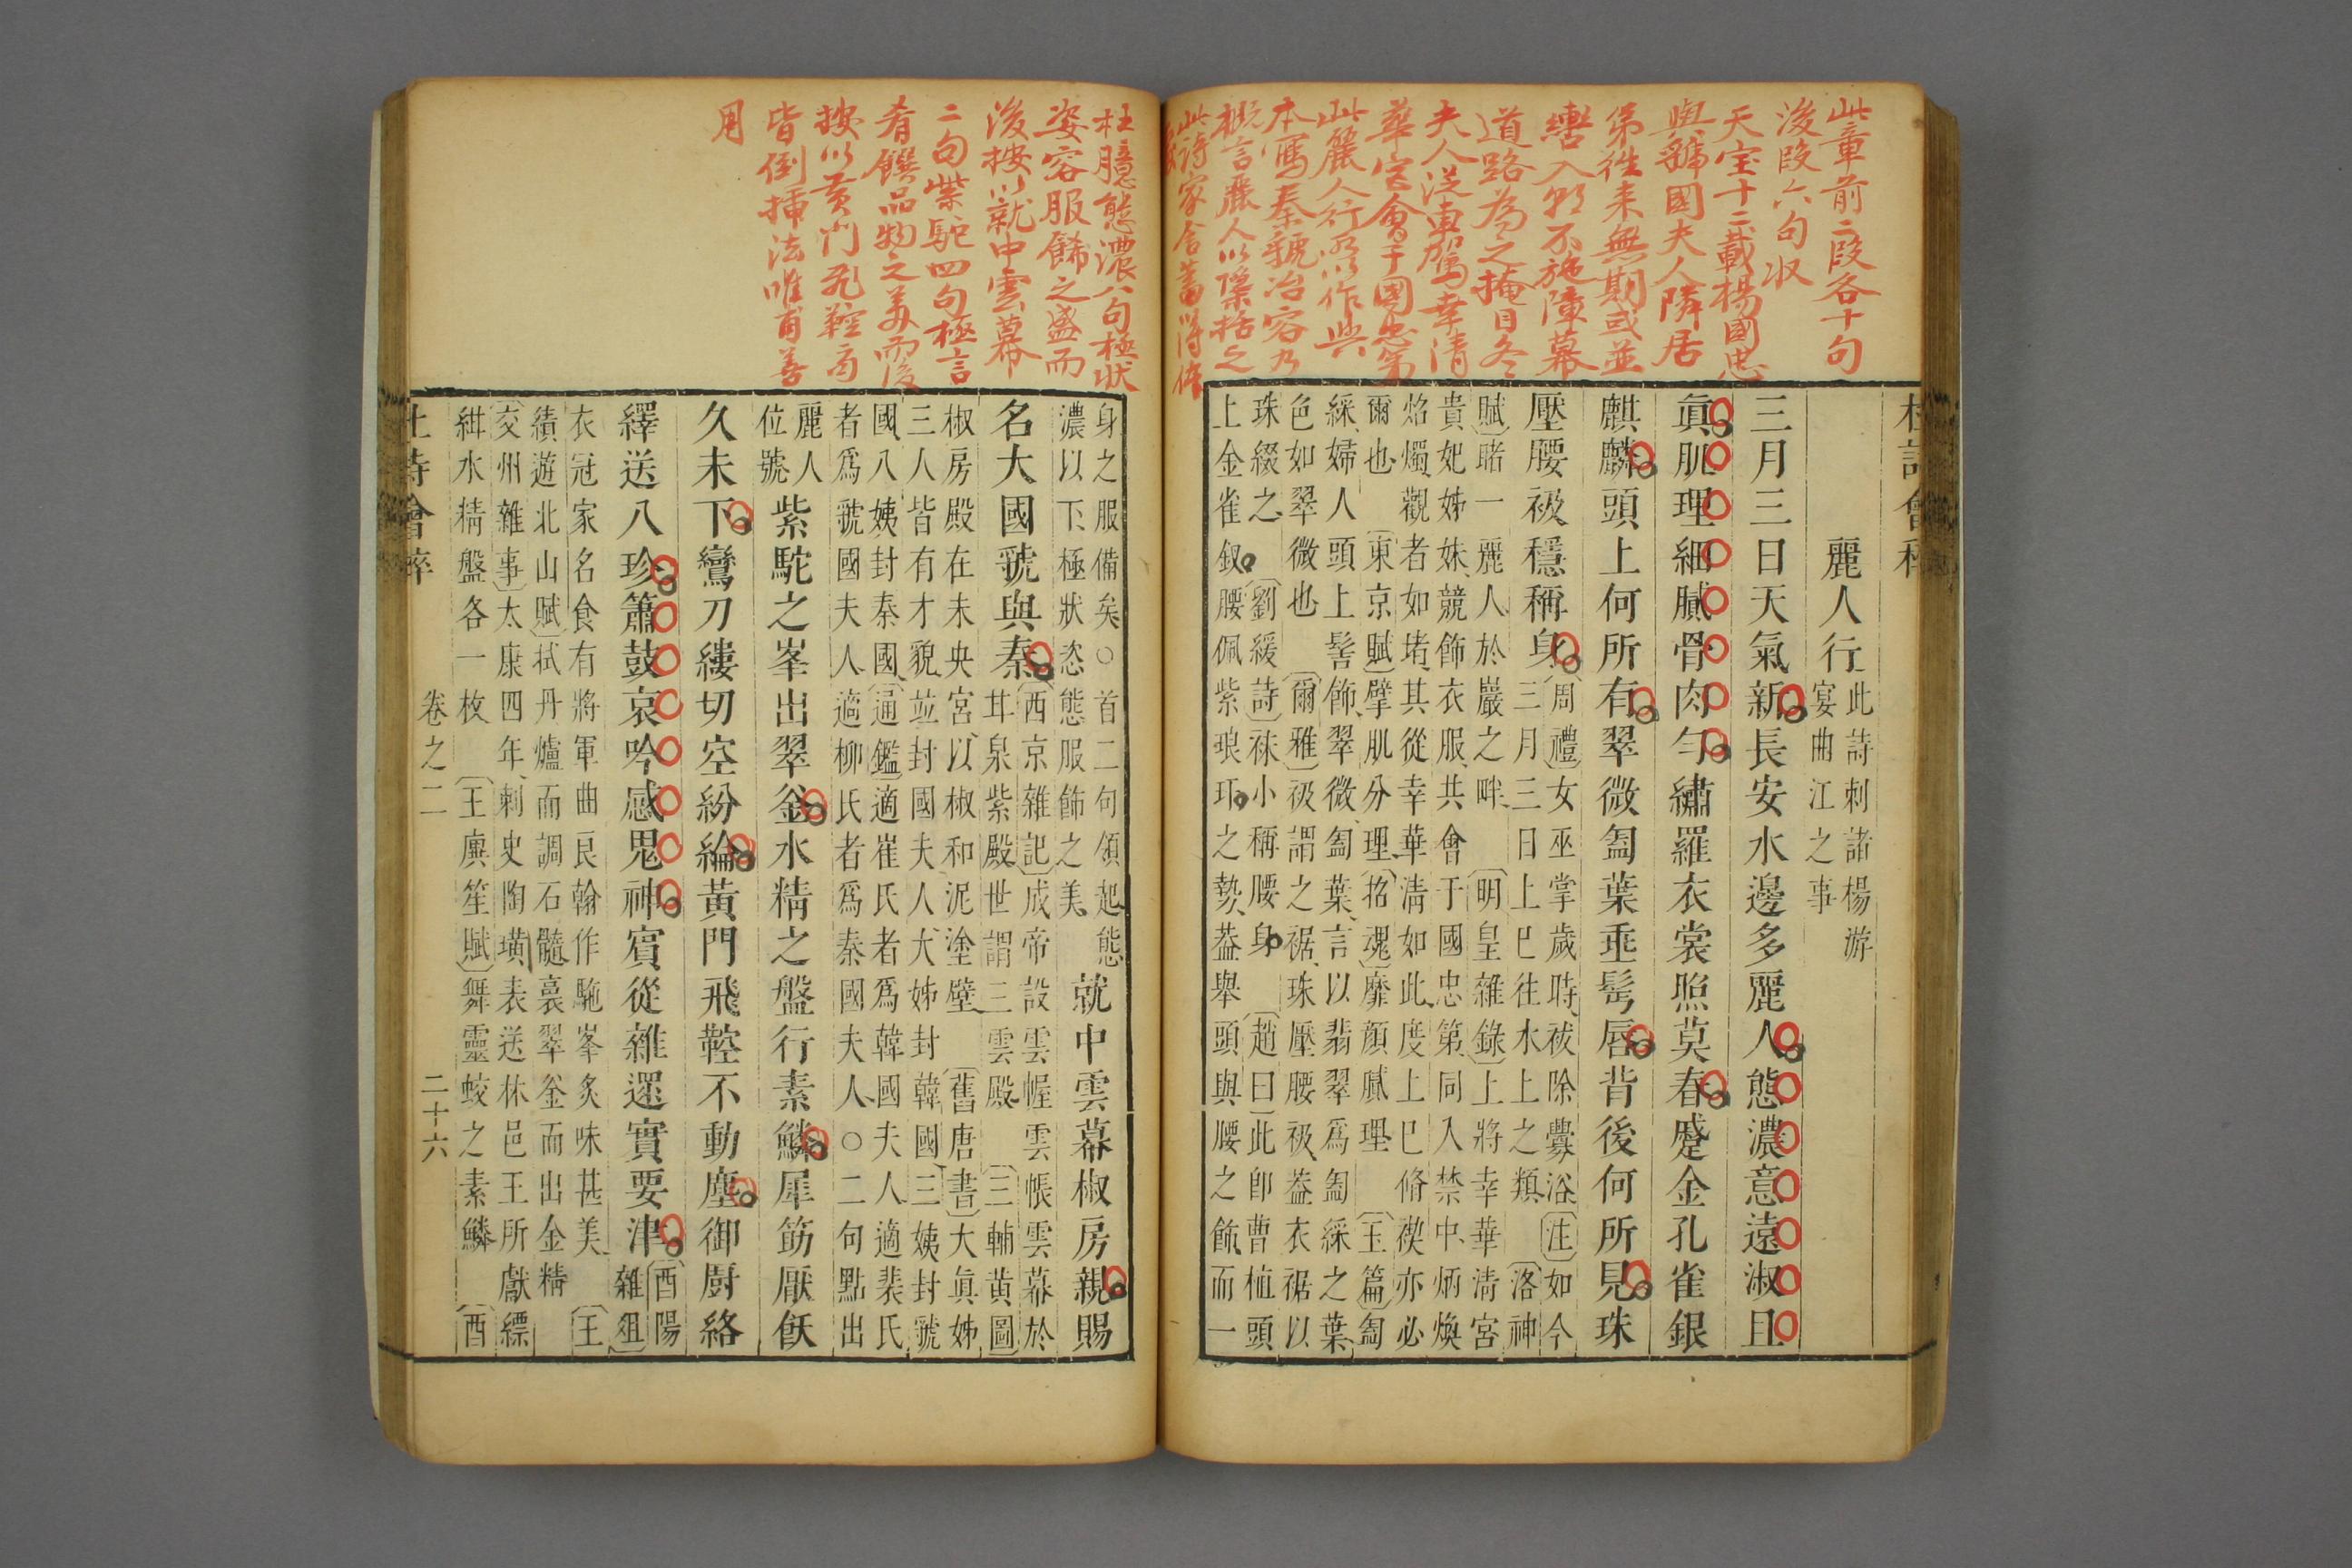 此章前二段各十句
後段六句收
天宝十二載楊國忠
與虢國夫人隣居
第往来無期或並
轡入朝不施障幕
道路為之掩目冬
夫人從車駕幸清
華宮會于國忠第
此麗人行所以作與
本寫秦虢冶容乃
概言麗人以隱括之
此詩家含蓄得体
麗人行
此詩刺諸楊游
宴曲江之事
三月三日天氣新長安水邊多麗人態濃意遠淑且
眞肌理細膩骨肉勻繡羅衣裳照莫春蹙金孔雀銀
麒麟頭上何所有翠微㔩葉垂髩唇背後何所見珠
壓腰衱穩稱身
周禮女巫掌歲時祓除釁浴注如今
三月三日上巳往水上之類洛神
賦睹一麗人於巖之畔明皇雜錄上將幸華淸宮
貴妃姊妹競飾衣服共會于國忠第同入禁中炳煥
焰燭觀者如堵其從幸華淸如此度上巳脩禊亦必
爾也東京賦擘肌分理招魂靡顏膩理玉篇㔩
綵婦人頭上髻飾翠微㔩葉言以翡翠爲㔩綵之葉
色如翠微也爾雅衱謂之裾珠壓腰衱葢衣裾以
珠綴之劉緩詩袜小稱腰身趙曰此卽曹植頭
上金雀釵腰佩紫琅玕之勢葢舉頭與腰之飾而一
身之服備矣○首二句領起態
濃以下極狀恣態服飾之美
就中雲幕椒房親賜
名大國虢與秦
西京雜記成帝設雲幄雲帳雲幕於
甘泉紫殿世謂三雲殿三輔黃圖
椒房殿在未央宮以椒和泥塗壁舊唐書大眞姊
三人皆有才貌竝封國夫人大姊封韓國三姨封虢
國八姨封秦國通鑑適崔氏者爲韓國夫人適裴氏
者爲虢國夫人適柳氏者爲秦國夫人○二句點出
麗人
位號
紫駝之峯出翠釜水精之盤行素鱗犀筯厭飫
久未下鸞刀縷切空紛綸黃門飛鞚不動塵御厨絡
繹送八珍簫鼓哀吟感鬼神賓從雜遝實要津
酉陽
雜俎
衣冠家名食有將軍曲良翰作駞峯炙味甚美王
績遊北山賦拭丹爐而調石髓裛翠釜而出金精
交州雜事太康四年刺史陶璜表送林邑王所獻縹
紺水精盤各一枚王廙笙賦舞靈蛟之素鱗酉
卷之二
二十六
杜臆態濃八句極狀
姿容服餙之盛而
後按以就中雲幕
二句紫駝四句極言
肴饌品物之美而後
按以黃門飛鞚高
皆倒插法唯甫善
用